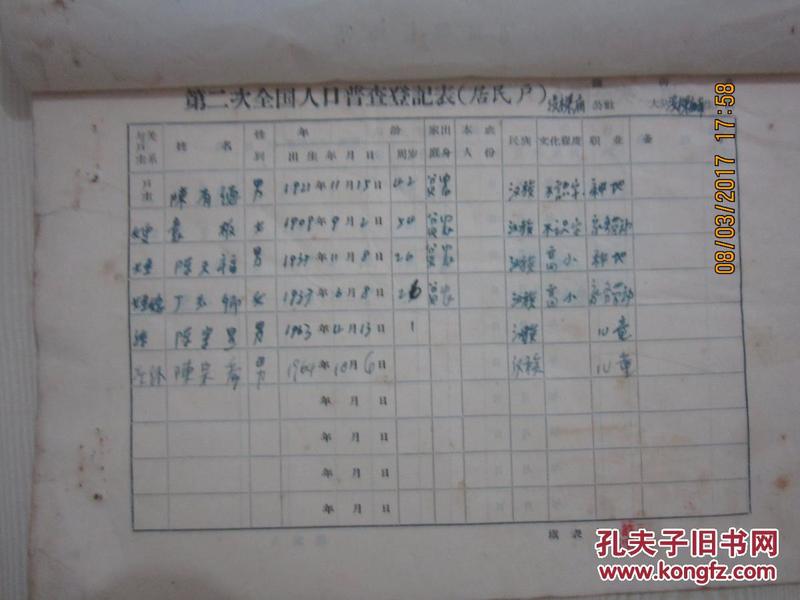 第二次全国人口普查登記表(居民户) 公社 大队
与户主关系 姓名 性別 年齡 家庭出身 本人成份 民族 文化程度 职业 备
出生年月日 周岁
户主 陳有德 男 1921年11月15日 42 貧农 汉族 不識字 种地
袁 女 1909年9月2日 54 貧农 汉族 不识字 家务劳动
陈天福 男 1937年11月8日 26 貧农 汉族 高小 种地
丁 女 1937年6月8日 26 貧农 汉族 高小 家务劳动
孫 陈 男 1963年4月13日 1 汉族 儿童
陳宗 男 1964年10月6日 汉族 儿童
年月日
年月日
年月日
年月日
填表
08/03/2017 17:58
孔夫子旧书网
www.kongfz.com